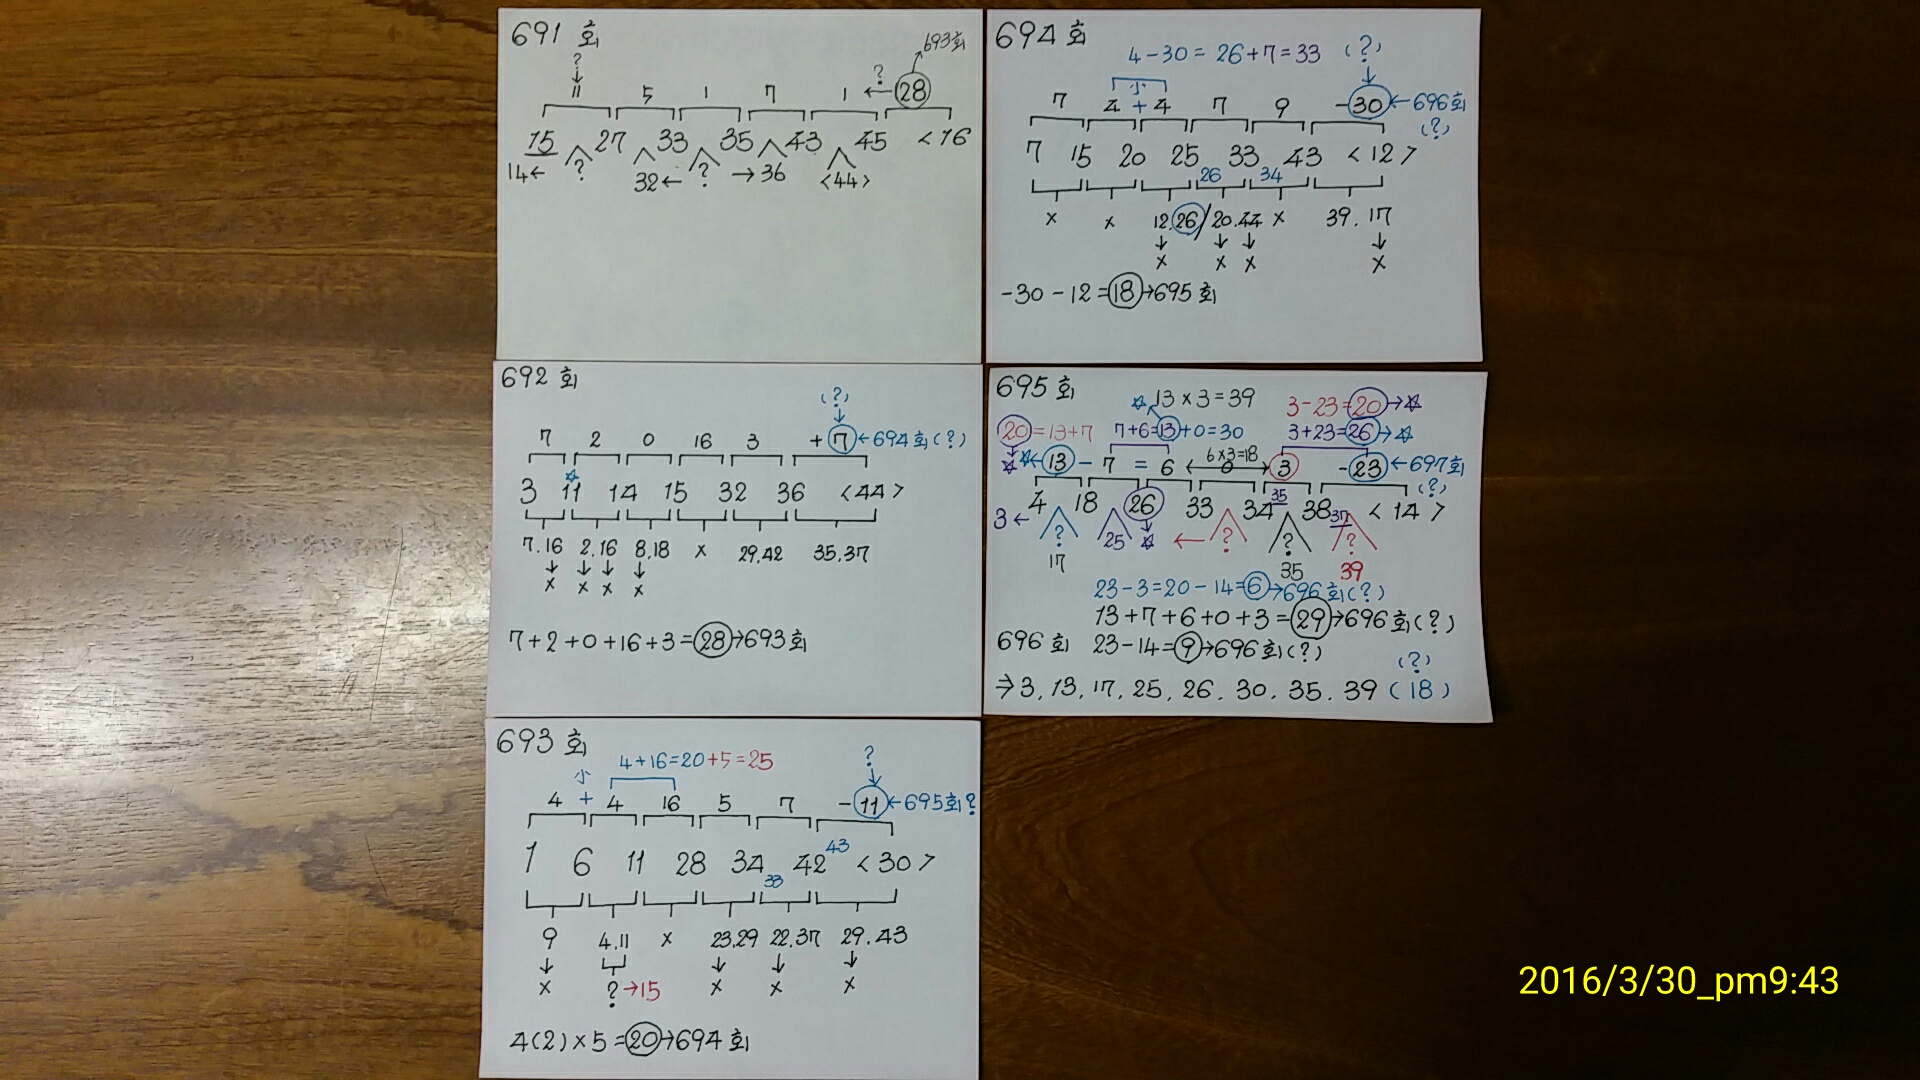 691 회
693회
?
↓
?
11 5 1 7 1 ← 28
15 27 33 35 43 45 <16
14← ? 32← ? →36 <44>
692 회
(?)
↓
7 2 0 16 3 +7 ←694회(?)
☆
3 11 14 15 32 36 <44>
7.16 2.16 8.18 x 29.42 35.37
↓ ↓ ↓ ↓
x x x x
7+2+0+16+3=28→693회
693 회
4+16=20+5=25
?
↓
小
4 + 4 16 5 7 -11 ←695회?
43
1 6 11 28 34 42 <30>
33
9 4.11 x 23.29 22.37 29.43
↓ ↓ ↓ ↓
x ?→15 x x x
4(2)×5=20→694회
694 회
4-30=26+7=33 (?)
↓
小
7 4+4 7 9 -30 ←696회
(?)
7 15 20 25 33 43 <12>
26 34
x x 12.26/20.44 x 39.17
↓ ↓ ↓ ↓
x x x x
-30-12=18→695회
695 회
☆ 13×3=39 3-23=20→☆
20=13+7 7+6=13+0=30 3+23=26→☆
6×3=18
☆ ☆←13-7=6 ←0→ 3 -23←697회
(?)
35
4 18 26 33 34 38 <14>
37
3← ? 25 ☆ ← ? ? ?
17 35 39
23-3=20-14=6→696회(?)
13+7+6+0+3=29→696회(?)
696회 23-14=9→696회(?)
(?)
⇒3, 13, 17, 25, 26. 30. 35. 39 (18)
2016/3/30_pm9:43